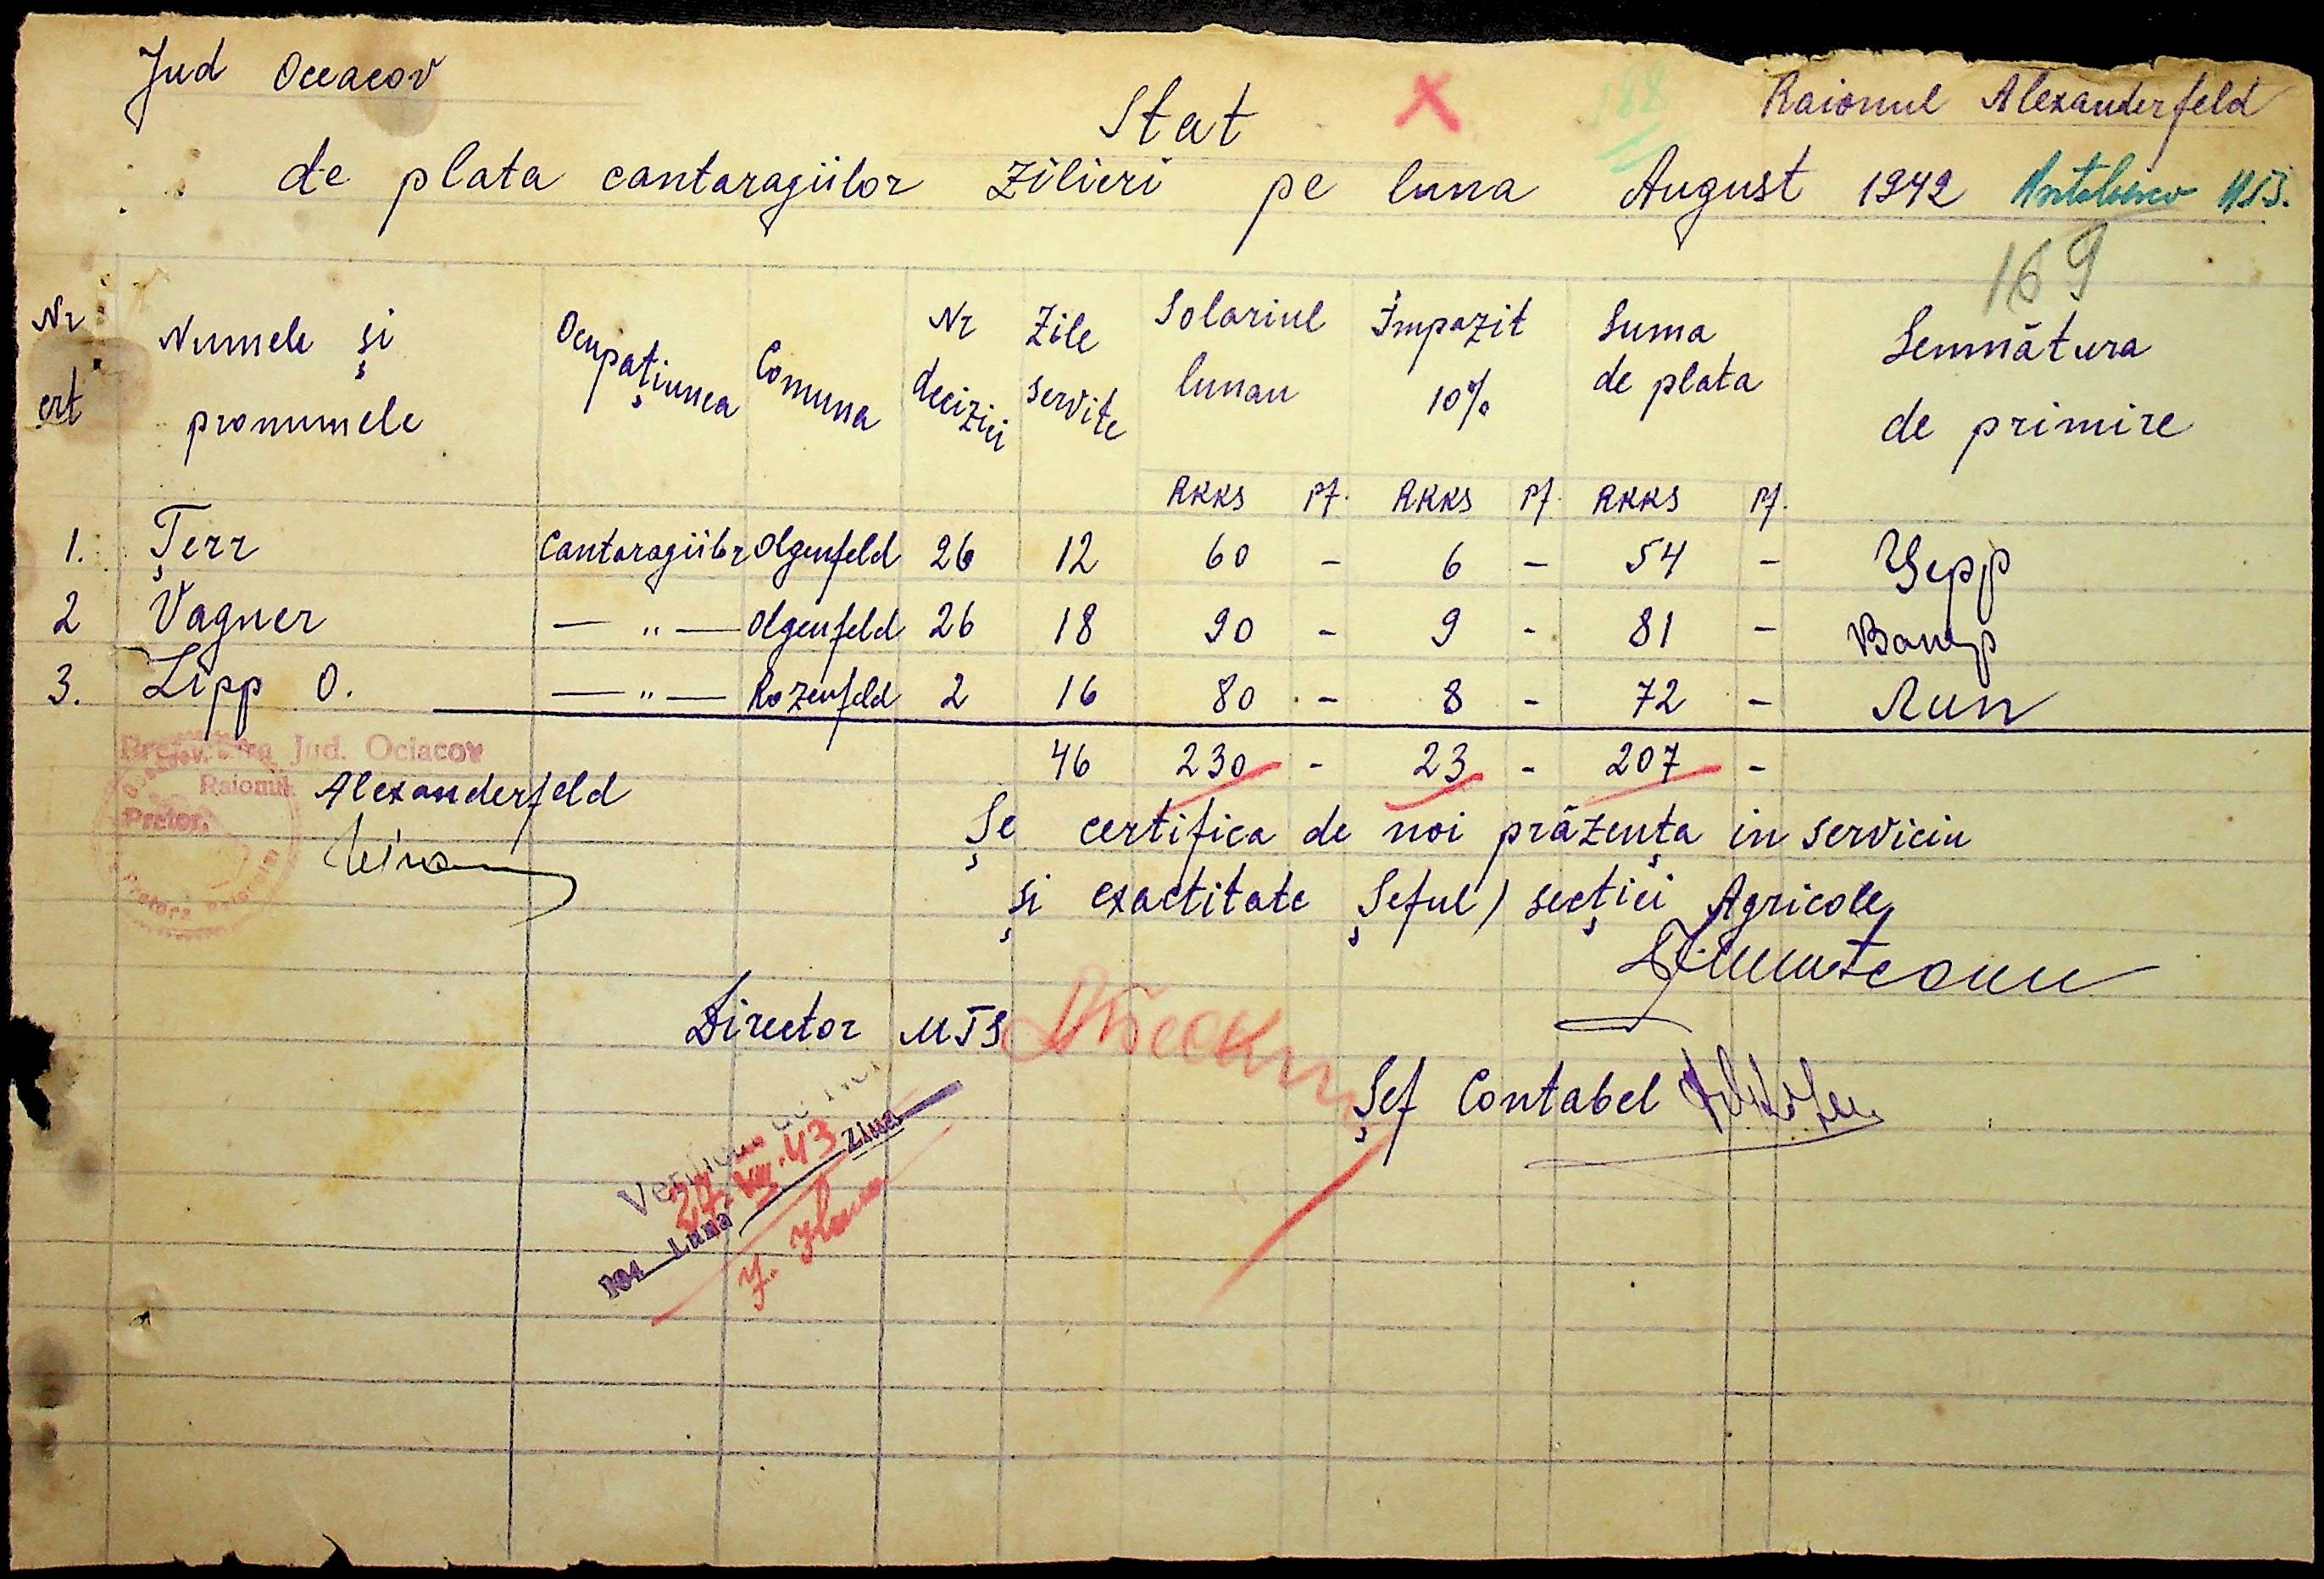 Jud Oceacov
Raionul Alexanderfeld
Stat
de plata cantaragiilor zilieri pe luna August 1942
169
Nr crt Numele și pronumele Ocupațiunea Comuna Nr deciziei Zile servite Solariul lunau Impozit 10% Suma de plata Semnătura de primire
RKKS Pf. RKKS Pf. RKKS Pf.
1. Țerr Cantaragiilor Olgenfeld 26 12 60 - 6 - 54 -
2 Vagner — " — Olgenfeld 26 18 90 - 9 - 81 -
3. Lipp O. — " — Rozenfeld 2 16 80 - 8 - 72 -
46 230 - 23 - 207 -
Jud. Ociacov
Raionul Alexanderfeld
Pretor,
Șe certifica de noi prăzența in serviciu
și exactitate Șeful secției Agricole
Director MTS
Șef Contabel
27.VIII.43
194 Luna Ziua